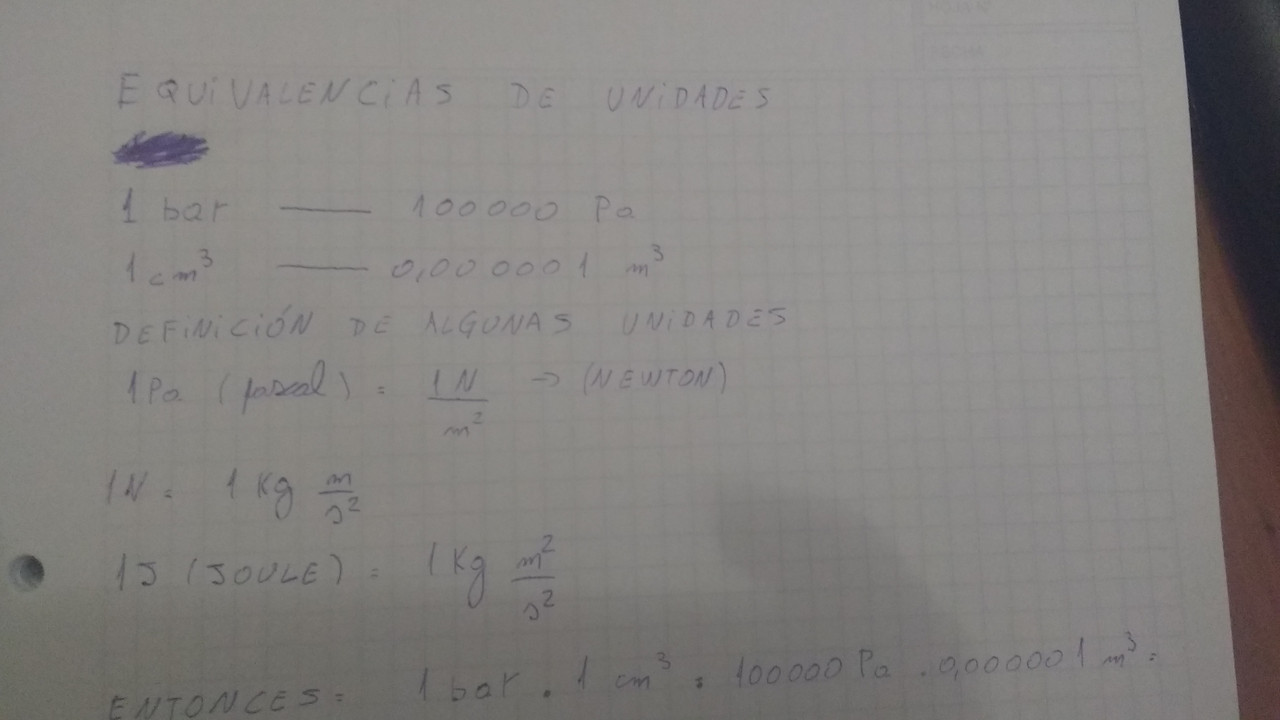 EQUIVALENCIAS DE UNIDADES
1 bar — 100000 Pa
1 cm³ — 0,000001 m³
DEFINICIÓN DE ALGUNAS UNIDADES
1Pa (pascal) = 1N/m² → (NEWTON)
1N = 1 Kg m/s²
1J (JOULE) = 1Kg m²/s²
ENTONCES = 1 bar . 1 cm³ = 100000 Pa . 0,000001 m³ =